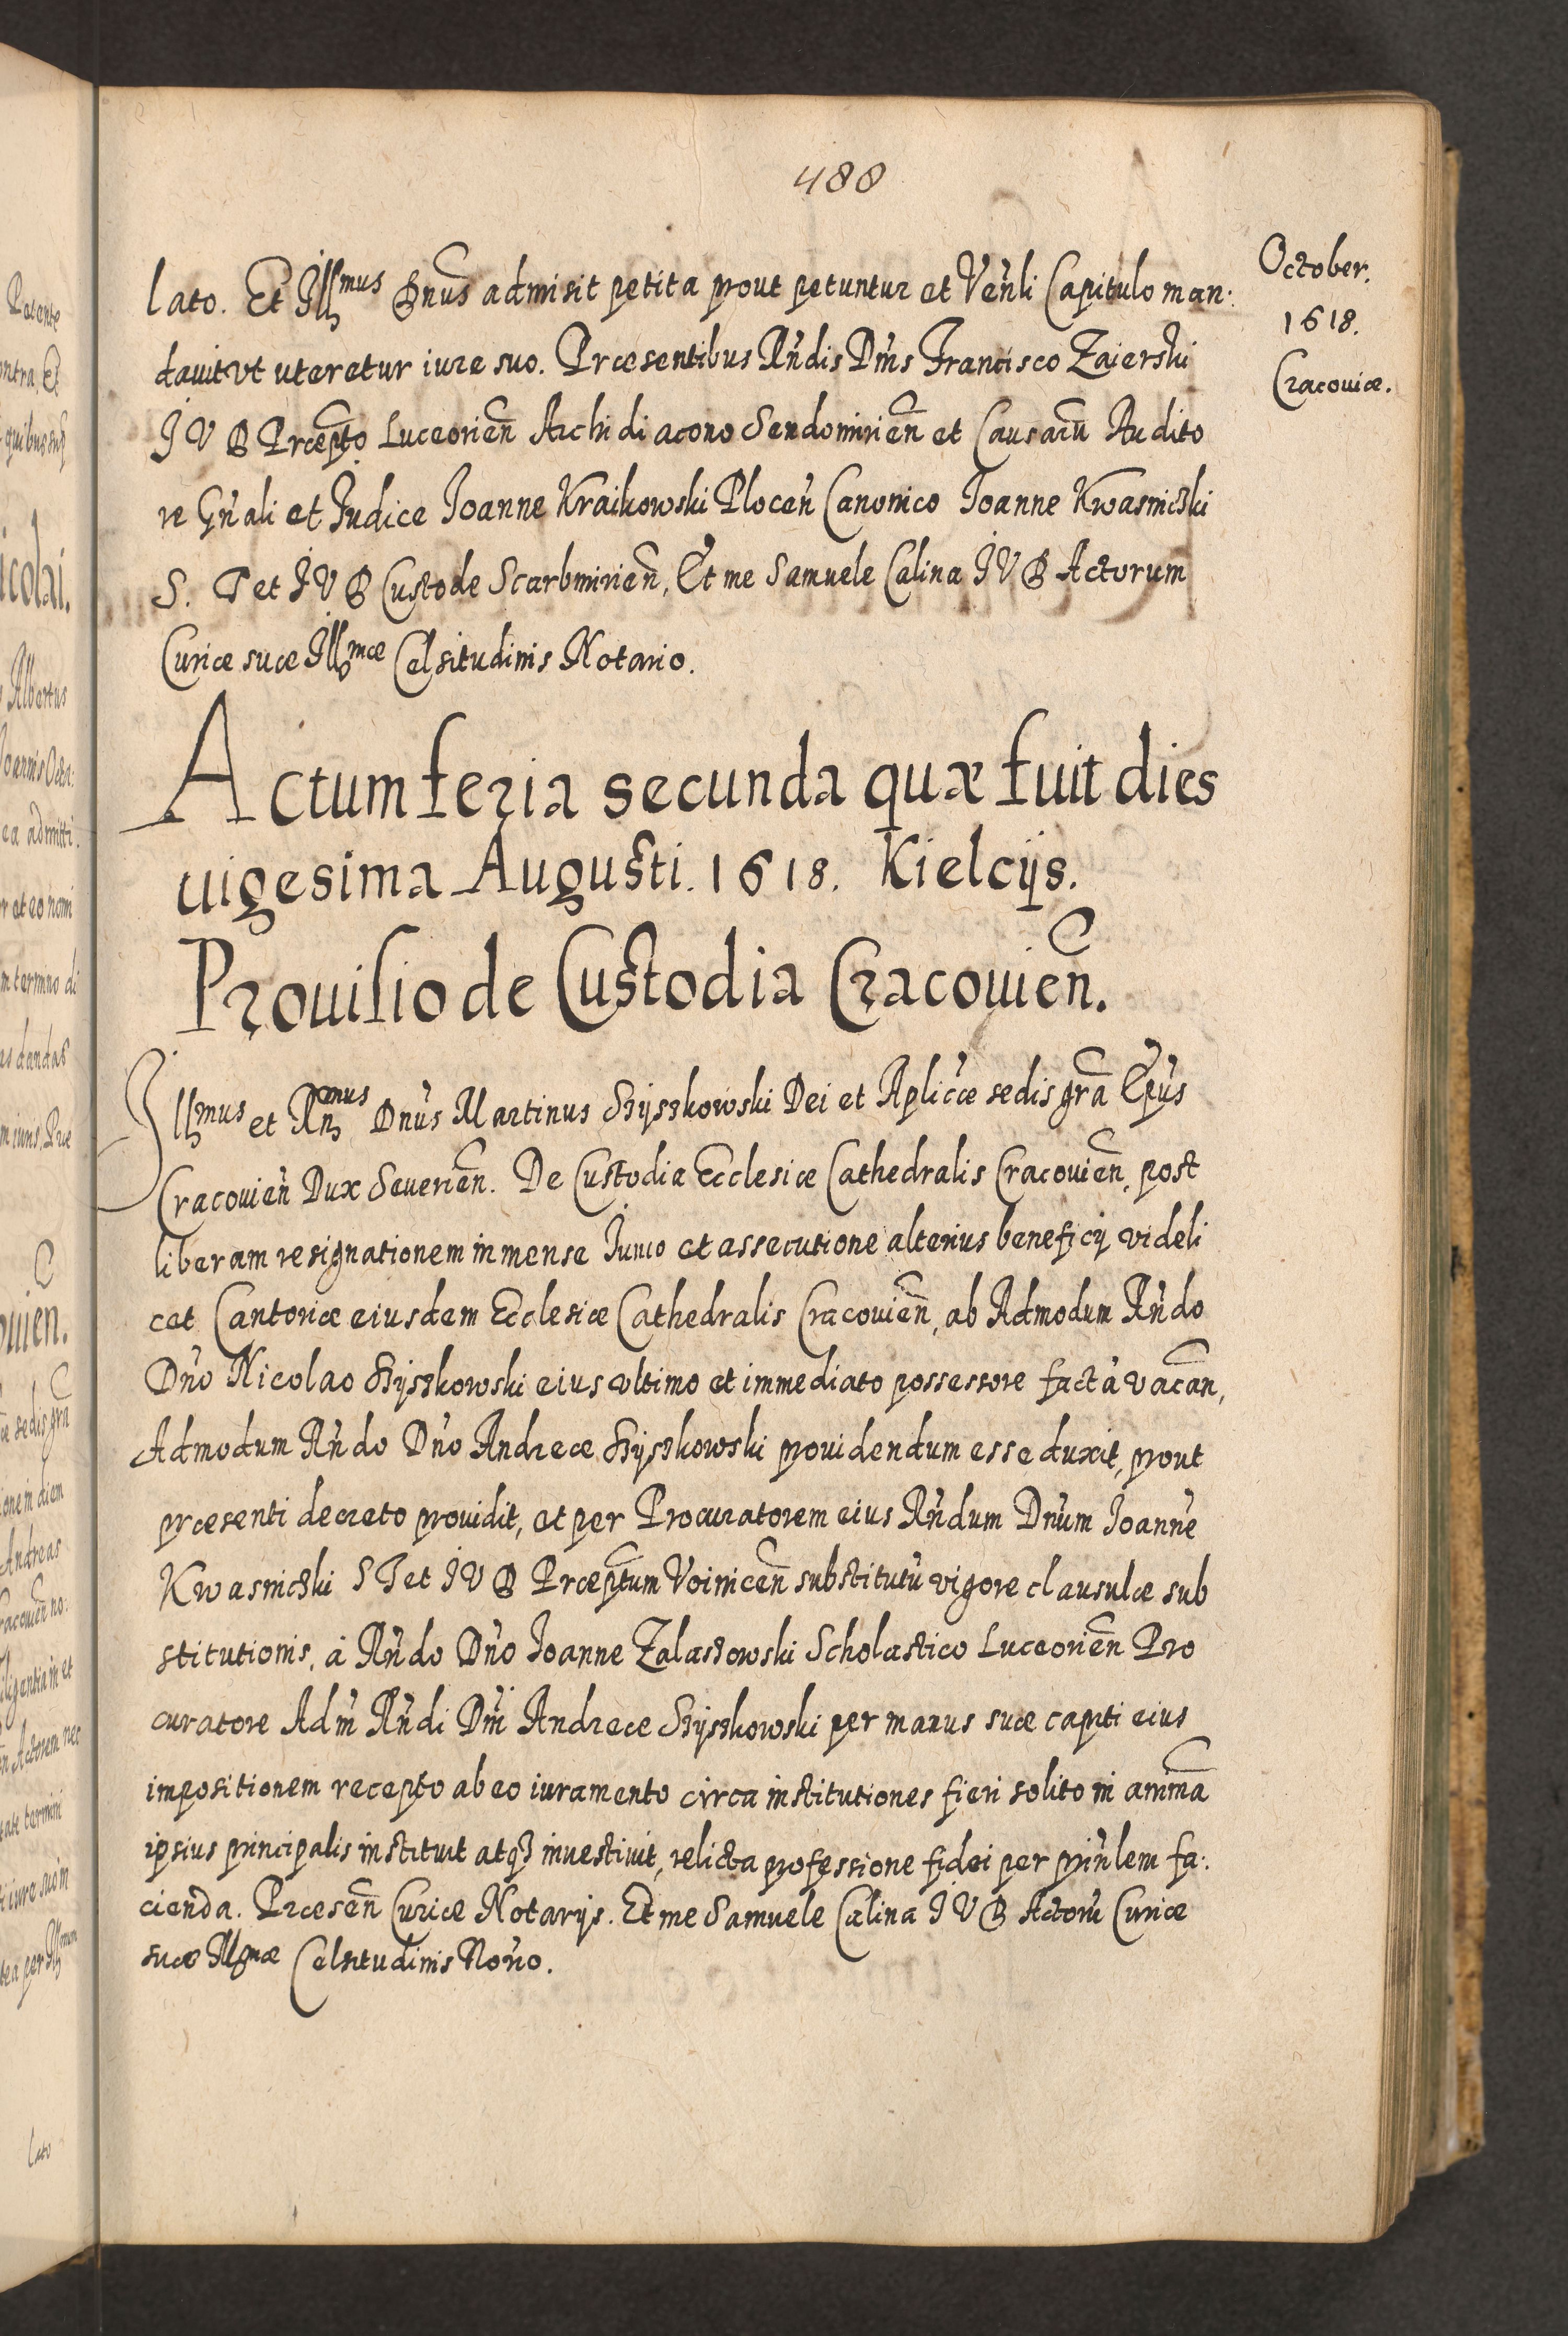 488
October.
1618.
Cracouiæ.
lato. Et Illmus Dnus admisit petita prout petuntur et Venli Capitulo man:
dauit vt uteretur iure suo. Præsentibus Rndis Dnis Francisco Zaierski
I V D Præpto Luceorien Archidiacono Sendomirien et Causaru Audito
re Gnali et Iudice Ioanne Kraikowski Plocen Canonico Ioanne Kwasnicki
S. T et I V D Custode Scarbmirien, Et me Samuele Calina I V D Actorum
Curiæ suæ Illmæ Celsitudinis Notario.
Actum feria secunda quæ fuit dies
uigesima Augusti. 1618. Kielcijs.
Prouisio de Custodia Cracouien.
Illmus et Rndmus Dnus Martinus Szyszkowski Dei et Aplicæ sedis gra Epus
Cracouien Dux Seuerien. De Custodia Ecclesiæ Cathedralis Cracouien, post
liberam resignationem in mense Iunio et assecutione alterius beneficij videli
cet Cantoriæ eiusdem Ecclesiæ Cathedralis Cracouien, ab Admodum Rndo
Dno Nicolao Szyszkowski eius vltimo et immediato possessore facta vacan,
Admodum Rndo Dno Andreæ Szyszkowski prouidendum esse duxit, prout
præsenti decreto prouidit, et per Procuratorem eius Rndum Dnum Ioanne
Kwasnicki S T et I V D Præptum Voinicen substitutu vigore clausulæ sub
stitutionis, à Rndo Dno Ioanne Zalastowski Scholastico Luceorien Pro
curatore Adm Rndi Dni Andreæ Szyszkowski per manus suæ capiti eius
impositionem recepto ab eo iuramento circa institutiones fieri solito in animã
ipsius principalis instituit atq3 inuestiuit, relicta professione fidei per prinlem fa:
cienda. Præsen Curiæ Notarijs. Et me Samuele Calina I V D Actoru Curiæ
suæ Illmæ Celsitudinis Notrio.